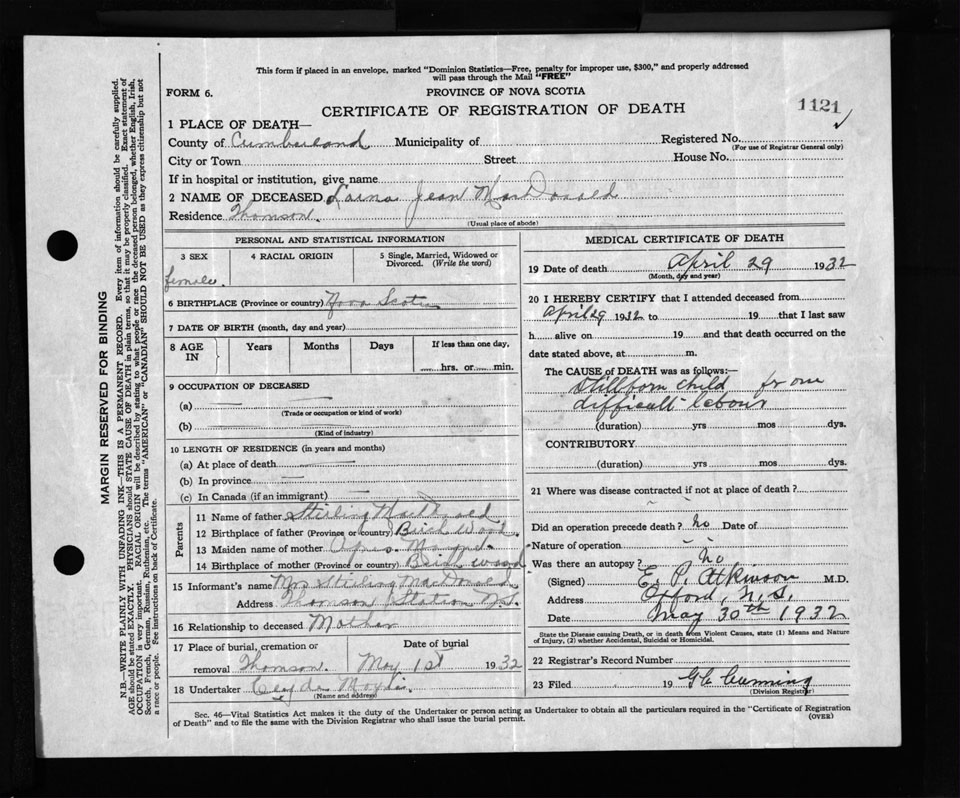 This form if placed in an envelope, marked "Dominion Statistics—Free, penalty for improper use, $300," and properly addressed
will pass through the Mail "FREE"
FORM 6.
PROVINCE OF NOVA SCOTIA
CERTIFICATE OF REGISTRATION OF DEATH
1121
1 PLACE OF DEATH—
County of Cumberland Municipality of Registered No.
(For use of Registrar General only)
City or Town Street House No.
If in hospital or institution, give name
2 NAME OF DECEASED Lorna Jean MacDonald
Residence Thomson.
(Usual place of abode)
PERSONAL AND STATISTICAL INFORMATION
3 SEX 4 RACIAL ORIGIN 5 Single, Married, Widowed or
Divorced. (Write the word)
female.
6 BIRTHPLACE (Province or country) Nova Scotia
7 DATE OF BIRTH (month, day and year)
8 AGE IN Years Months Days If less than one day,
hrs. or min.
9 OCCUPATION OF DECEASED
(a)
(Trade or occupation or kind of work)
(b)
(Kind of industry)
10 LENGTH OF RESIDENCE (in years and months)
(a) At place of death
(b) In province
(c) In Canada (if an immigrant)
Parents
11 Name of father Stirling MacDonald
12 Birthplace of father (Province or country) Birch Wood
13 Maiden name of mother
14 Birthplace of mother (Province or country) Birch wood
15 Informant's name Mrs Stirling MacDonald
Address Thomson Station N.S.
16 Relationship to deceased Mother
17 Place of burial, cremation or Date of burial
removal Thomson. May 1st 1932
18 Undertaker Clyde
(Name and address)
MEDICAL CERTIFICATE OF DEATH
19 Date of death April 29 1932
(Month, day and year)
20 I HEREBY CERTIFY that I attended deceased from
April 29 1932 to 19 that I last saw
h alive on 19 and that death occurred on
date stated above, at m.
The CAUSE of DEATH was as follows:—
Stillborn child from
difficult labour
(duration) yrs mos dys.
CONTRIBUTORY
(duration) yrs mos dys.
21 Where was disease contracted if not at place of death?
Did an operation precede death? No Date of
Nature of operation
Was there an autopsy? No
(Signed) E. P. Atkinson M.D.
Address Oxford, N.S.
Date May 30th 1932
State the Disease causing Death, or in death from Violent Causes, state (1) Means and Nature
of Injury, (2) whether Accidental, Suicidal or Homicidal.
22 Registrar's Record Number
23 Filed 19 Cumming
(Division Registrar)
Sec. 46—Vital Statistics Act makes it the duty of the Undertaker or person acting as Undertaker to obtain all the particulars required in the "Certificate of Registration
of Death" and to file the same with the Division Registrar who shall issue the burial permit.
(OVER)
MARGIN RESERVED FOR BINDING
N.B.—WRITE PLAINLY WITH UNFADING INK—THIS IS A PERMANENT RECORD. Every item of information should be carefully supplied.
AGE should be stated EXACTLY. PHYSICIANS should STATE CAUSE OF DEATH in plain terms, so that it may be properly classified. Exact statement of
OCCUPATION is very important. RACIAL ORIGIN will be described by stating to what people or race the deceased person belonged, whether English, Irish,
Scotch, French, German, Russian, Ruthenian, etc. The terms "AMERICAN" or "CANADIAN" SHOULD NOT BE USED as they express citizenship but not
a race or people. See instructions on back of Certificate.